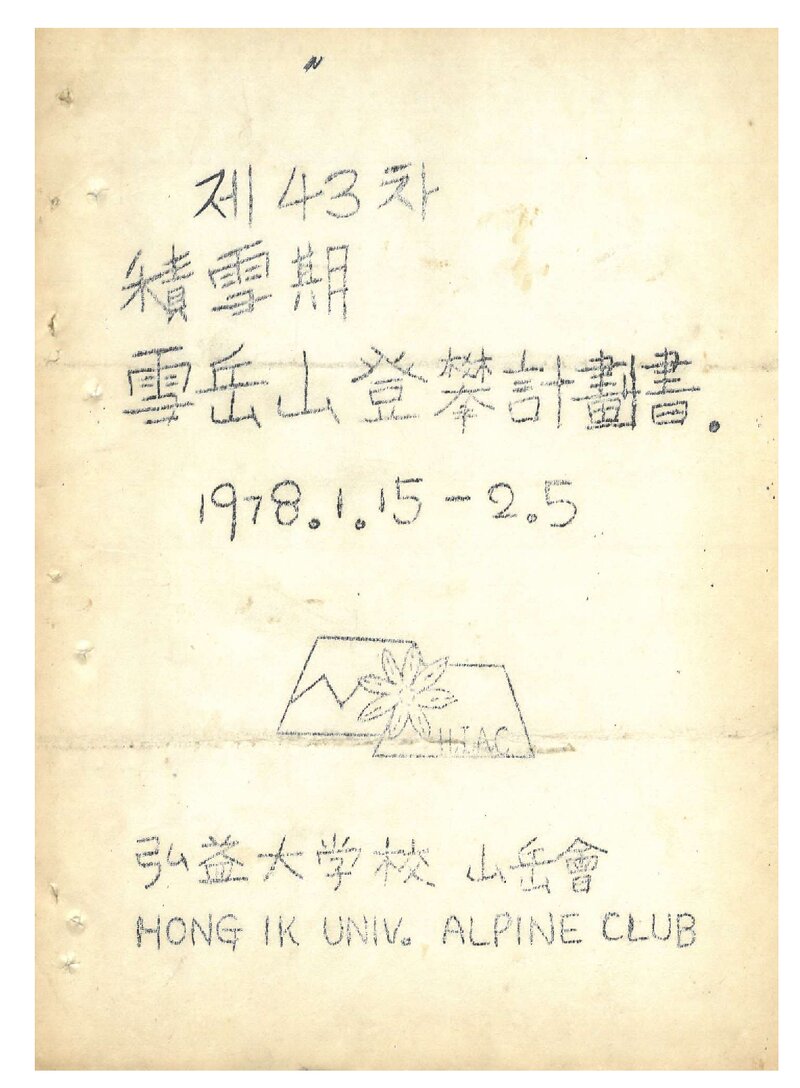 제 43 차
積雪期
雪岳山登攀計劃書.
1978.1.15 - 2.5
H.I.A.C.
弘益大学校 山岳會
HONG IK UNIV. ALPINE CLUB